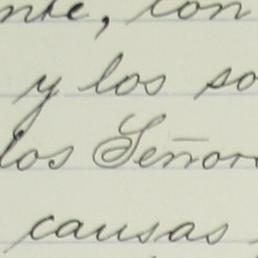 nte, con
y los so
los Señor
causas